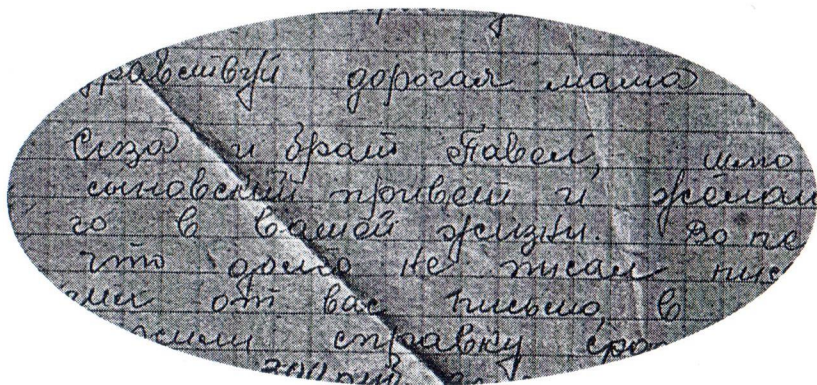 дорогая мама
и брат Павел, шлю
сыновский привет и желаю
го в вашей жизни. Во пе
что долго не писал
от вас письмо, в
справку